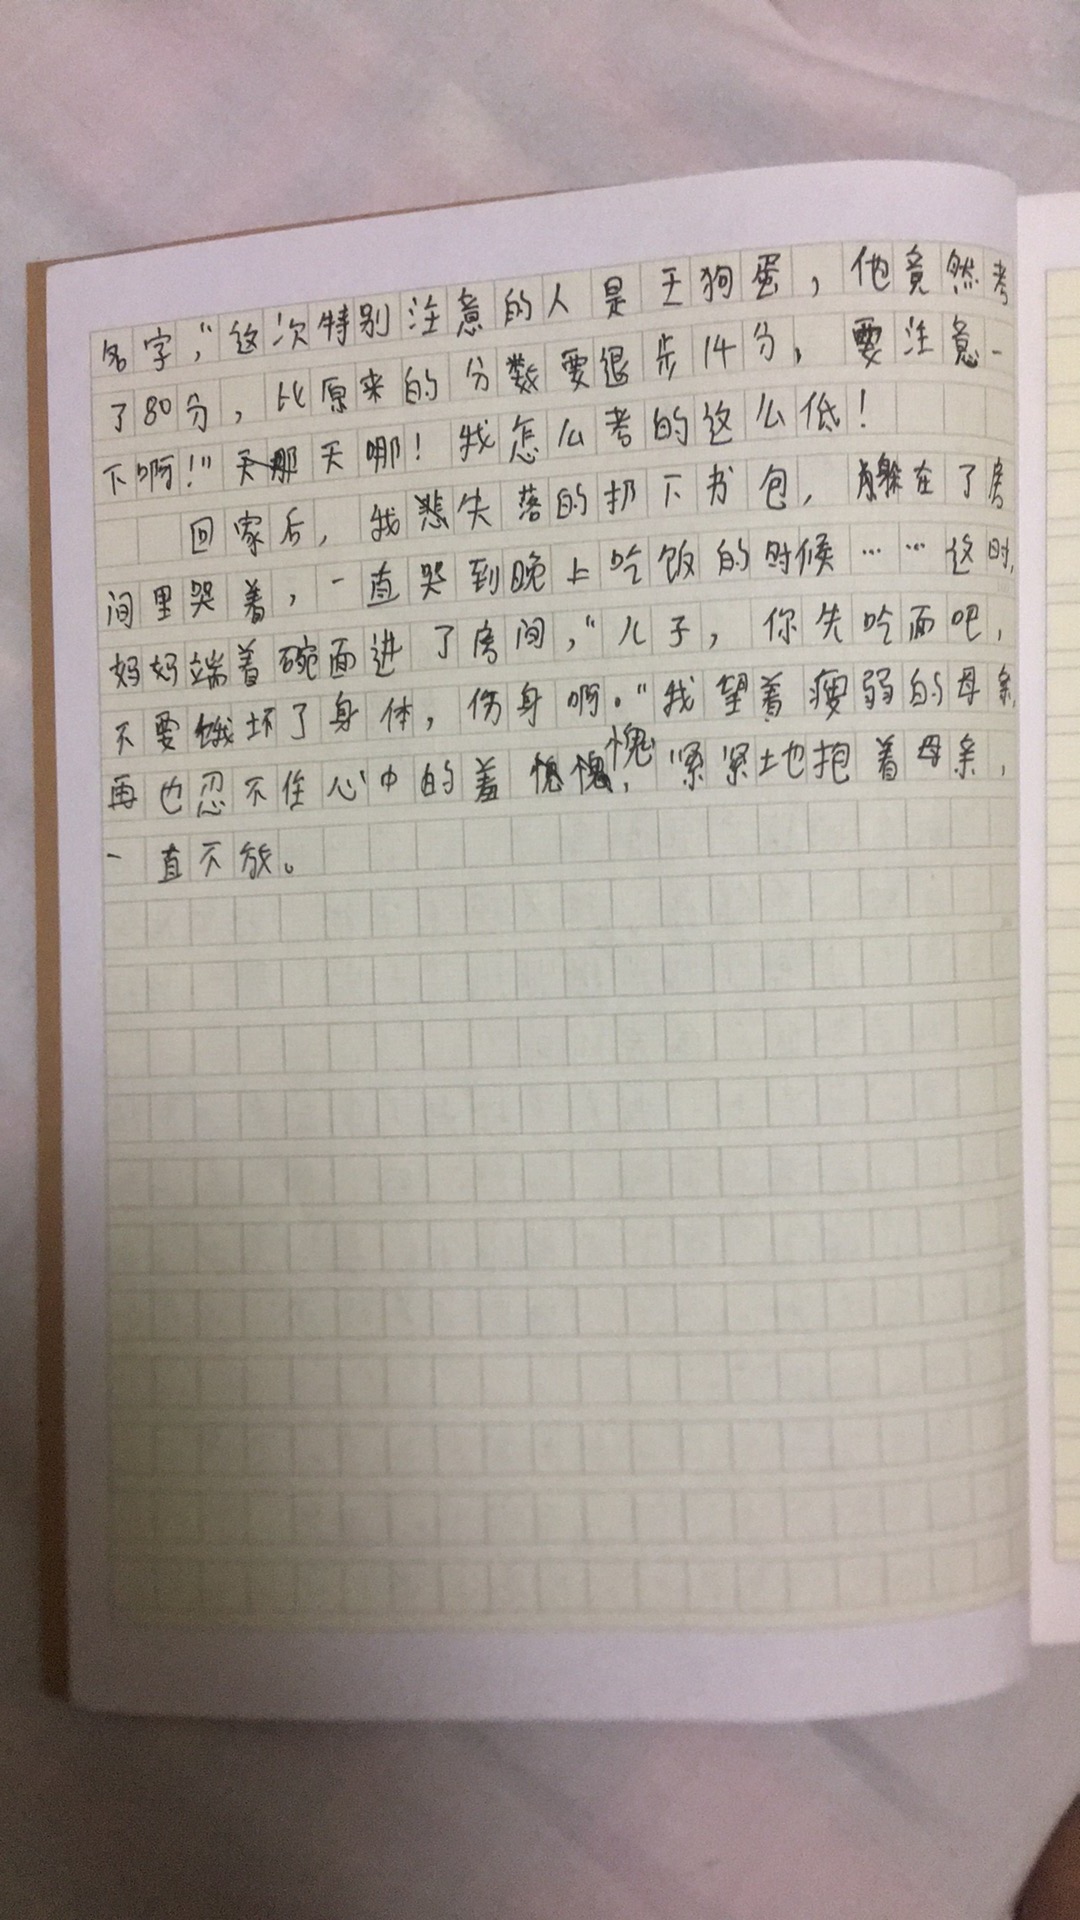 名字，“这次特别注意的人是王狗蛋，他竟然考
了80分，比原来的分数要退步14分，要注意一
下啊！”天哪！我怎么考的这么低！
回家后，我悲失落的扔下书包，躲在了房
间里哭着，一直哭到晚上吃饭的时候……这时，
妈妈端着碗面进了房间，“儿子，你先吃面吧，
不要饿坏了身体，伤身啊。”我望着瘦弱的母亲，
再也忍不住心中的羞愧，紧紧地抱着母亲，
一直不放。